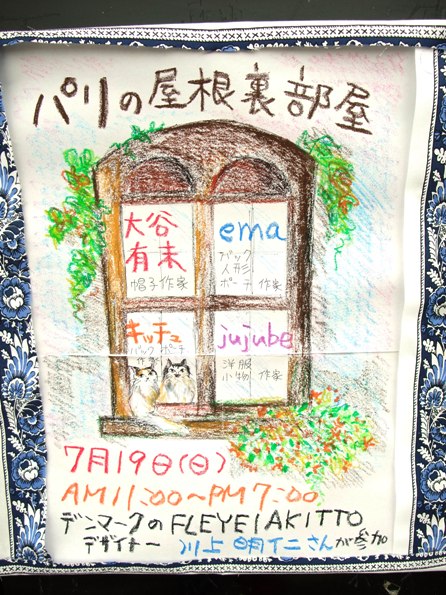 パリの屋根裏部屋
大谷
有未
帽子作家
ema
バック
人形
ポーチ 作家
キッチュ
バック ポーチ
jujube
洋服
小物 作家
7月19日(日)
AM11:00~PM7:00
デンマークのFLEYE|AKITTO
デザイナー 川上 明仁さんが参加